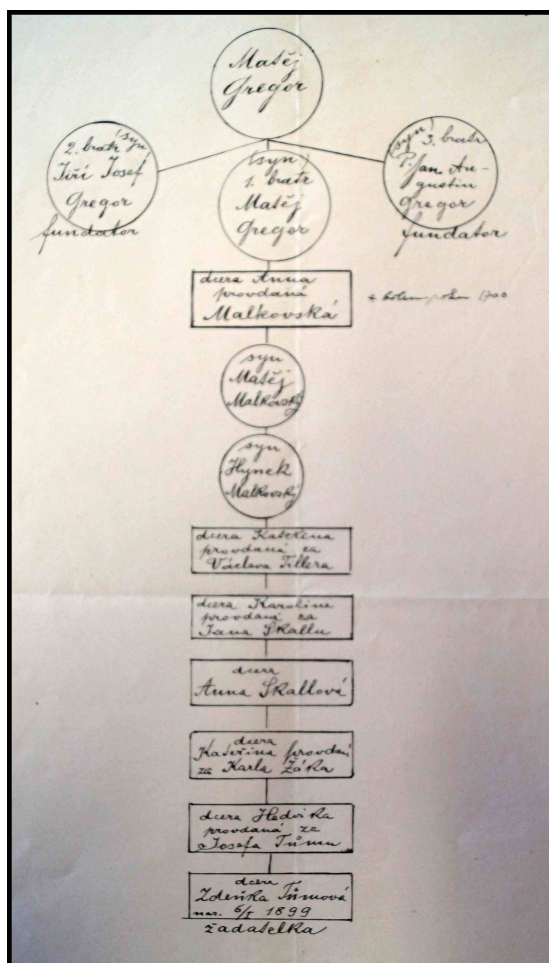 Matěj
Gregor
2. bratr (syn
Jiří Josef
Gregor
fundator
(syn)
1. bratr
Matěj
Gregor
(syn) 3. bratr
P. Jan Au-
gustin
Gregor
fundator
dcera Anna
provdaná
Malkovská
kolem roku 1700
syn
Matěj
Malkovský
syn
Hynek
Malkovský
dcera Kateřina
provdaná za
Václava Tillera
dcera Karolina
provdaná za
Jana Skallu
dcera
Anna Skallová
dcera
Kateřina provdaná
za Karla Žáka
dcera Hedvika
provdaná za
Josefa Tůmu
dcera
Zdeňka Tůmová
nar. 6/I 1899
žadatelka